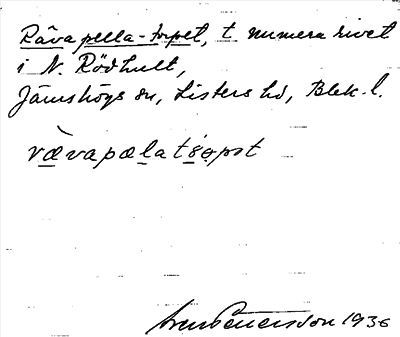 Rävapella-torpet, t. numera rivet
i N. Rödhult,
Jämshögs sn, Listers hd, Blek. l.
rævapælatsǫpət
Sven Benersson 1936